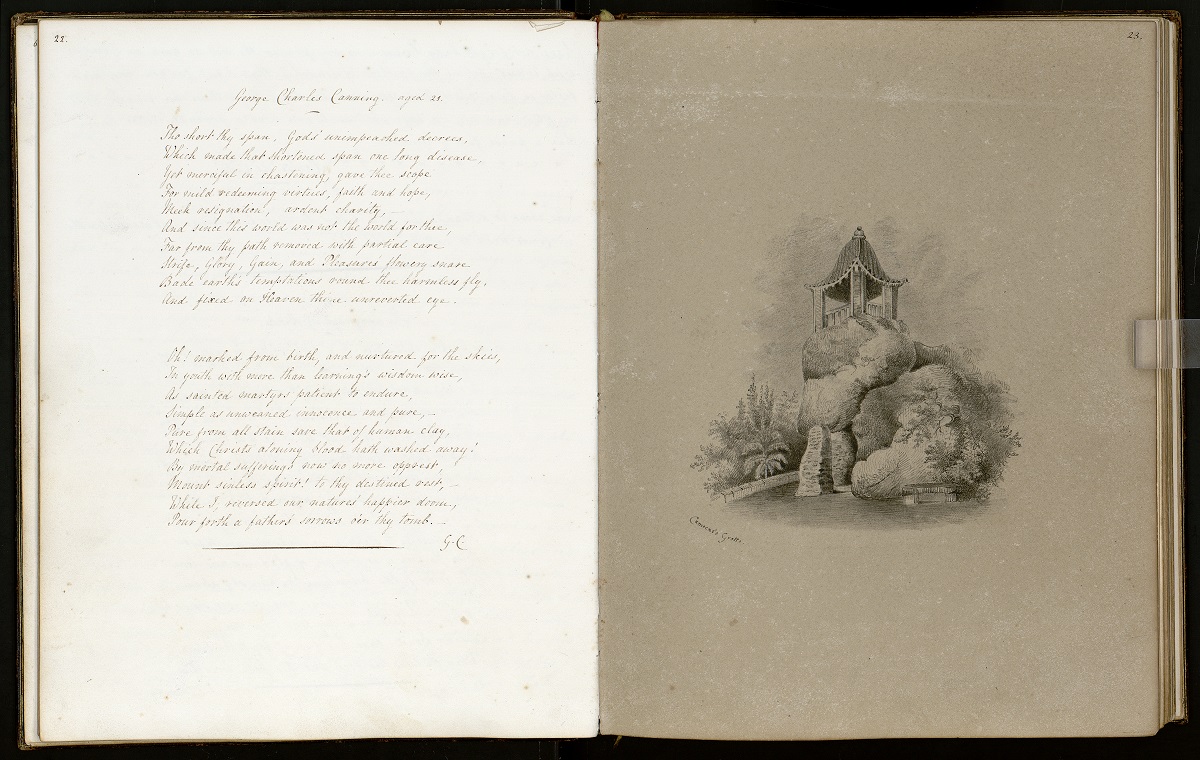 22.
George Charles Canning. aged 21.
Tho short thy span, Gods unimpeached decrees,
Which made that shortened span one long disease,
Yet merciful in chastening, gave thee scope
For mild redeeming virtues, faith and hope,
Meek resignation, ardent charity,—
And since this world was not the world for thee,
Far from thy path removed with partial care
Strife, Glory, Gain, and Pleasures flowery snare
Bade earths temptations round thee harmless fly,
And fixed on Heaven thine unreverted eye.
Oh! marked from birth, and nurtured for the skies,
In youth with more than learning's wisdom wise,
As sainted martyrs patient to endure,
Simple as unweaned innocence and pure,—
Pure from all stain save that of human clay,
Which Christs atoning blood hath washed away!
By mortal sufferings now no more opprest,
Mount sinless spirit! to thy destined rest,—
While I reversed our natures happier doom,
Pour forth a fathers sorrows o'er thy tomb.
G-C
23.
Camoens Grotto.